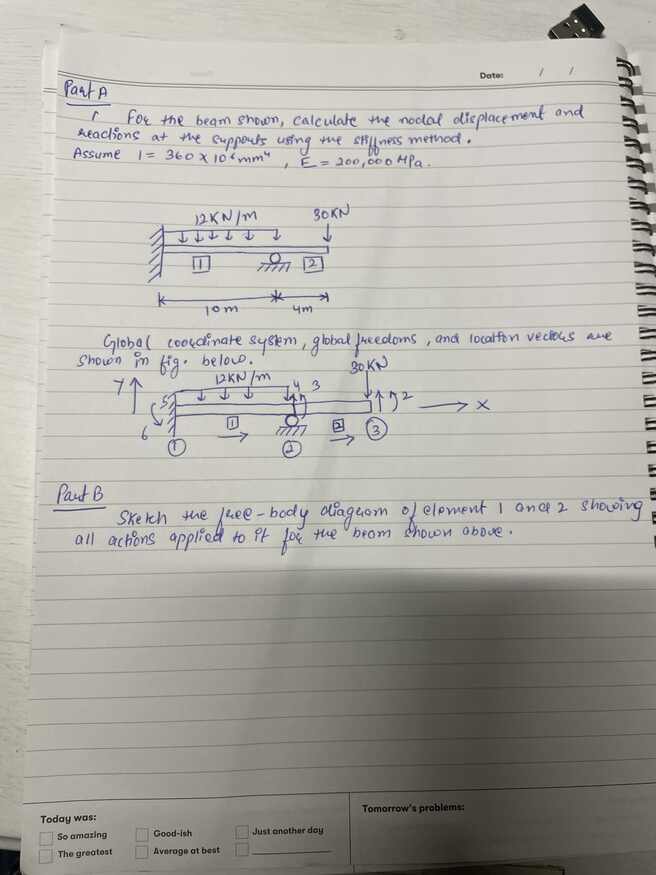 Date: / /
Part A
1 For the beam shown, calculate the nodal displacement and
reactions at the supports using the stiffness method.
Assume I = 360 X 10⁶ mm⁴, E = 200,000 MPa.
12KN/m 30KN
1 2
10m 4m
Global coordinate system, global freedoms, and location vectors are
shown in fig. below.
30KN
Y 12KN/m 4 3
5 2 X
6 1 2
1 2 3
Part B
Sketch the free-body diagram of element 1 and 2 showing
all actions applied to it for the beam shown above.
Today was:
So amazing Good-ish Just another day
The greatest Average at best
Tomorrow's problems: